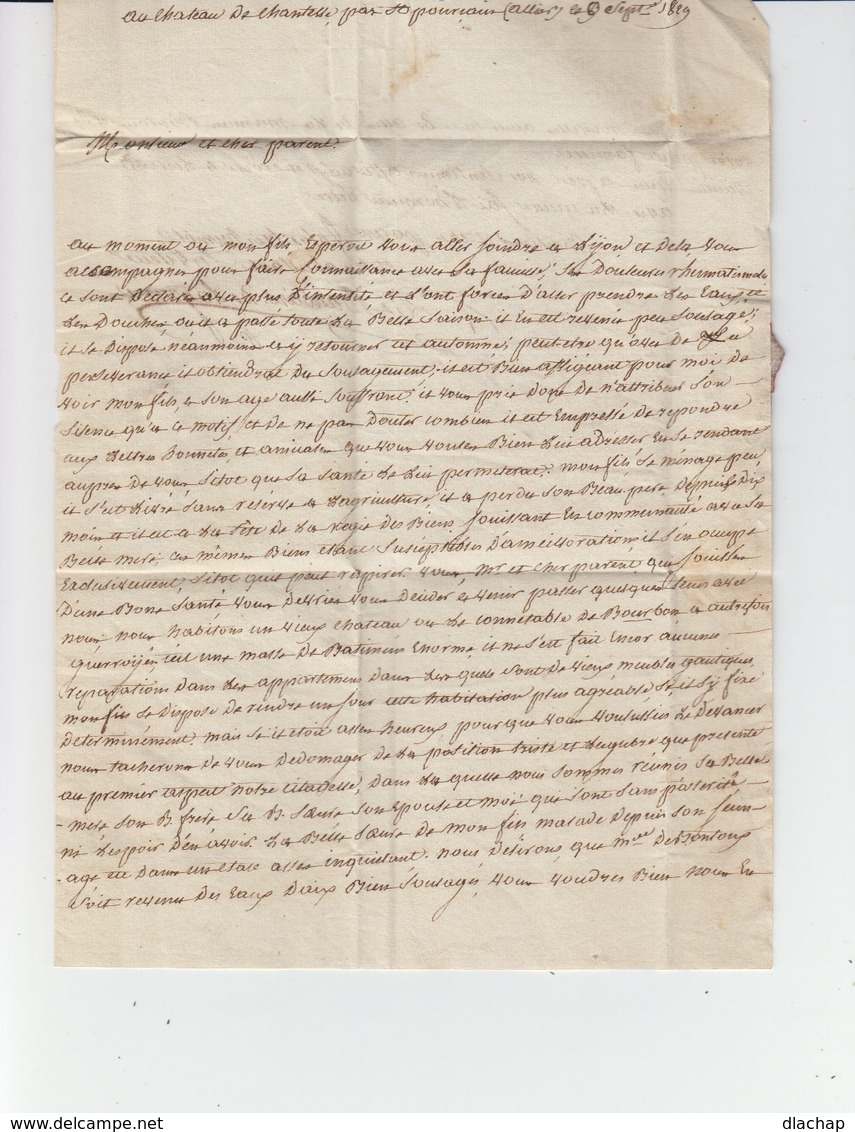 au Chateau de Chantelle par St pourçain (allier) le 9 Septre 1829
Monsieur et cher parent.
au moment ou mon fils Esperoit vous aller joindre a Dijon et dela vous
accompagner pour faire Connaissance avec sa famille, Ses Douleurs rhumatismales
ce sont Declarés avec plus D'intensité et L'ont forcés D'aler prendre Les Eaux et
Les Douches ou il a passé toute La Belle Saison. il En est revenu peu Soulagé;
il se Dispose néaumoins a y retourner cet automne, peut etre qu'avec de La
perseverance il obtiendra du Soulagement; il est Bien affligeant pour moi de
voir mon fils, a son age aussi Souffrant; il vous prie Donc de n'attribuer Son
Silence qu'a ce motif, et de ne pas Douter combien il est Empressé de repondre
aux Lettres honnetes et amicales que vous voules Bien Lui adresser En se rendant
aupres de vous Sitot que sa santé Le Lui permeterat. mon fils se ménage peu
il s'est Livré sans réserve a L'agriculture il a perdu son Beau pere Depuis Dix
mois et il est a La tête de La regie des Biens Jouissant En communauté avec sa
Belle mere, ces mêmes Biens etant Suseptibles D'amelioration il s'en occupe
Exclusivement, Sitot qu'il peut respirer. vous Mr et cher parent qui Jouissez
D'une Bone Santé vous Devries vous Decider a venir passer quelques tems avec
nous, nous habitons un vieux chateau ou Le connetable de Bourbon a autrefois
guerroyé, c'est une masse de Batimens Enorme il ne s'est fait Encor aucunes
reparations dans Les appartemens dans Les quels sont de vieux meubles gautiques,
mon fils se dispose de rendre un jour cette habitation plus agréable se il s'y fixe
determinément. mais se il etoit asses heureux pour que vous voulussies Le Devancer
nous tacherons de vous Dedomager de La position triste et Lugubre que presente
au premier aspect notre citadelle, dans La quelle nous sommes réunis sa Belle
mere son B. frere Sa B. Sœur son Epouse et moi que sont sans postérité
ni L'espoir D'en avoir. La Belle Sœur de mon fils malade Depuis son Jeun
age est Dans un Etat asses inquietant. nous désirons que Mme
soit revenue Des Eaux D'aix Bien Soulagés, vous voudres Bien nous En
dlachap